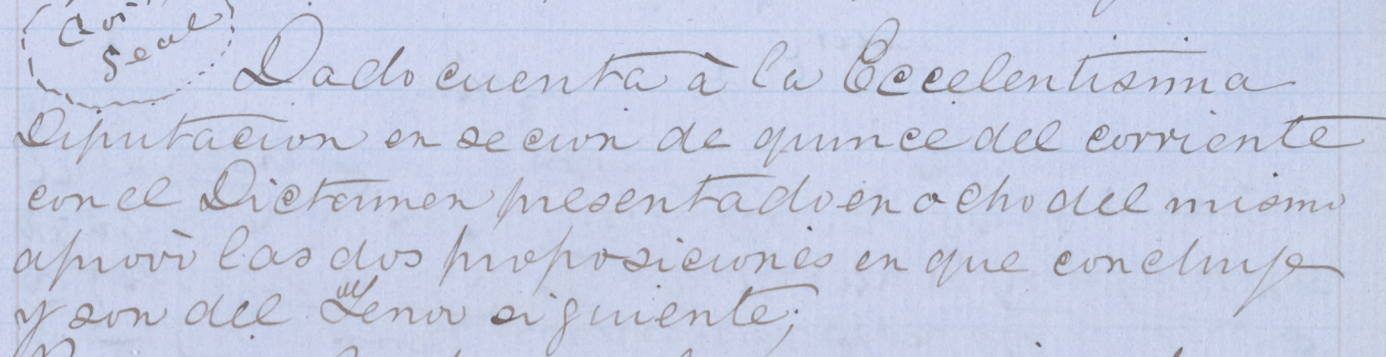 Seal
Dado cuenta à la Eccelentisima
Diputacion en secion de quince del corriente
con el Dictamen presentado en ocho del mismo
aprovò las dos proposiciones en que concluye
y son del Tenor siguiente;